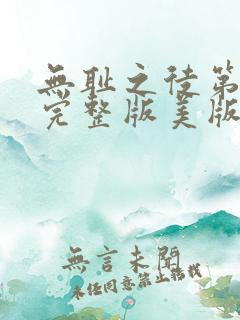 無耻之徒第
完整版美版
無言未閱
未任同意禁止轉載